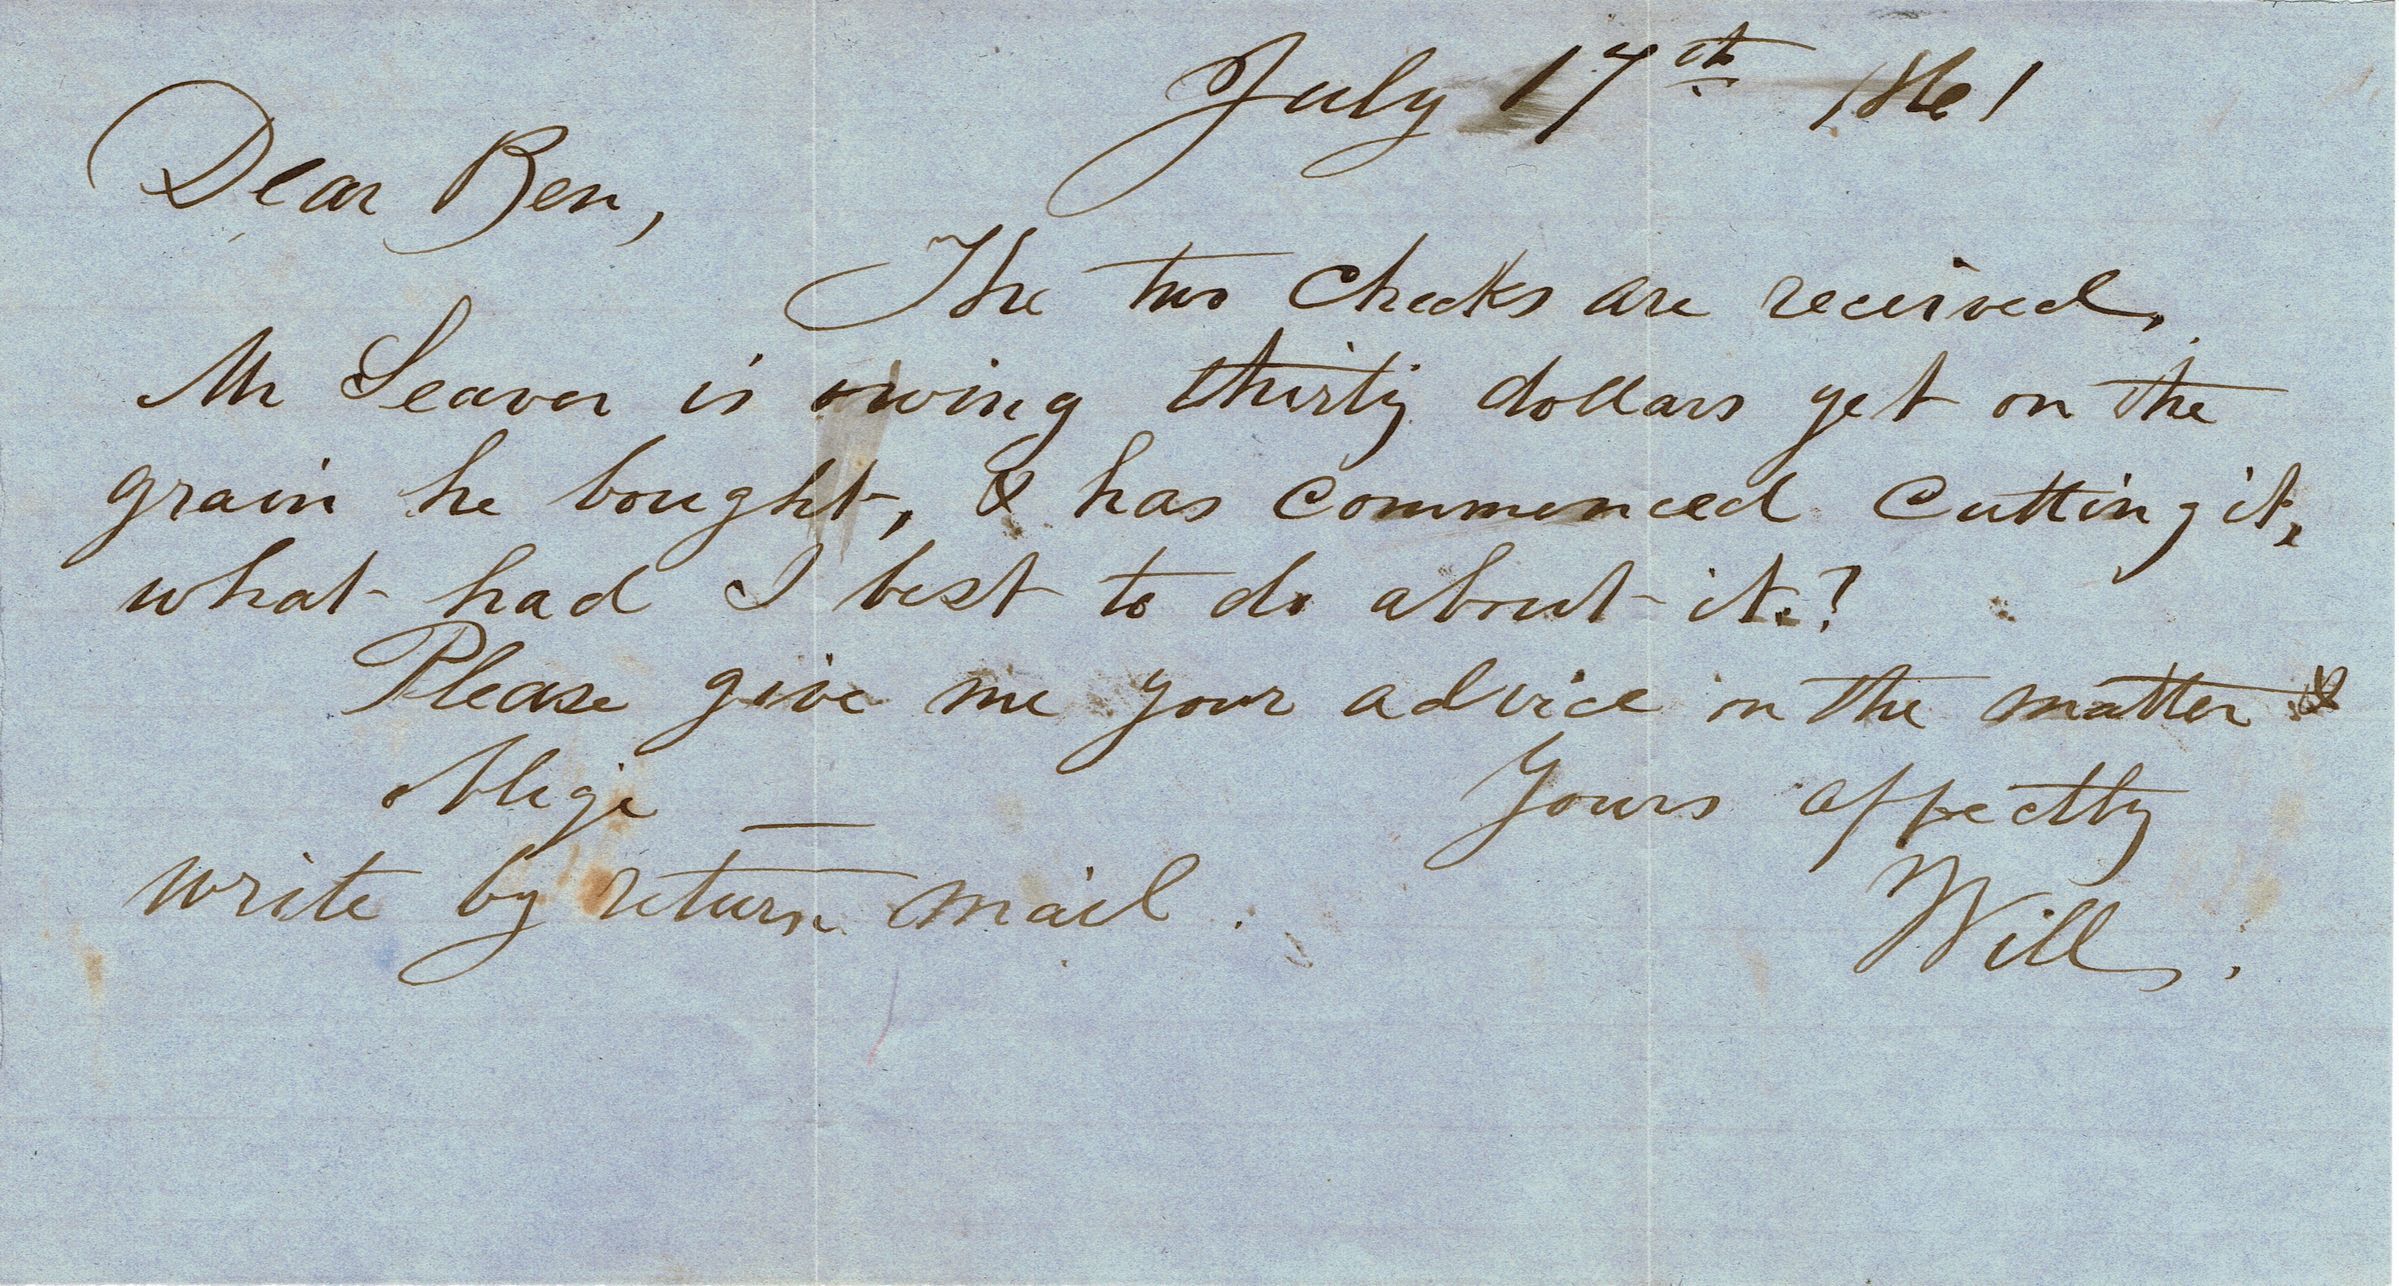 July 17th 1861
Dear Ben,
The two checks are received,
Mr Seaver is owing thirty dollars yet on the
grain he bought, & has commenced cutting it,
what had I best to do about it.?
Please give me your advice in the matter &
oblige
Yours affectly
write by return mail.
Will.